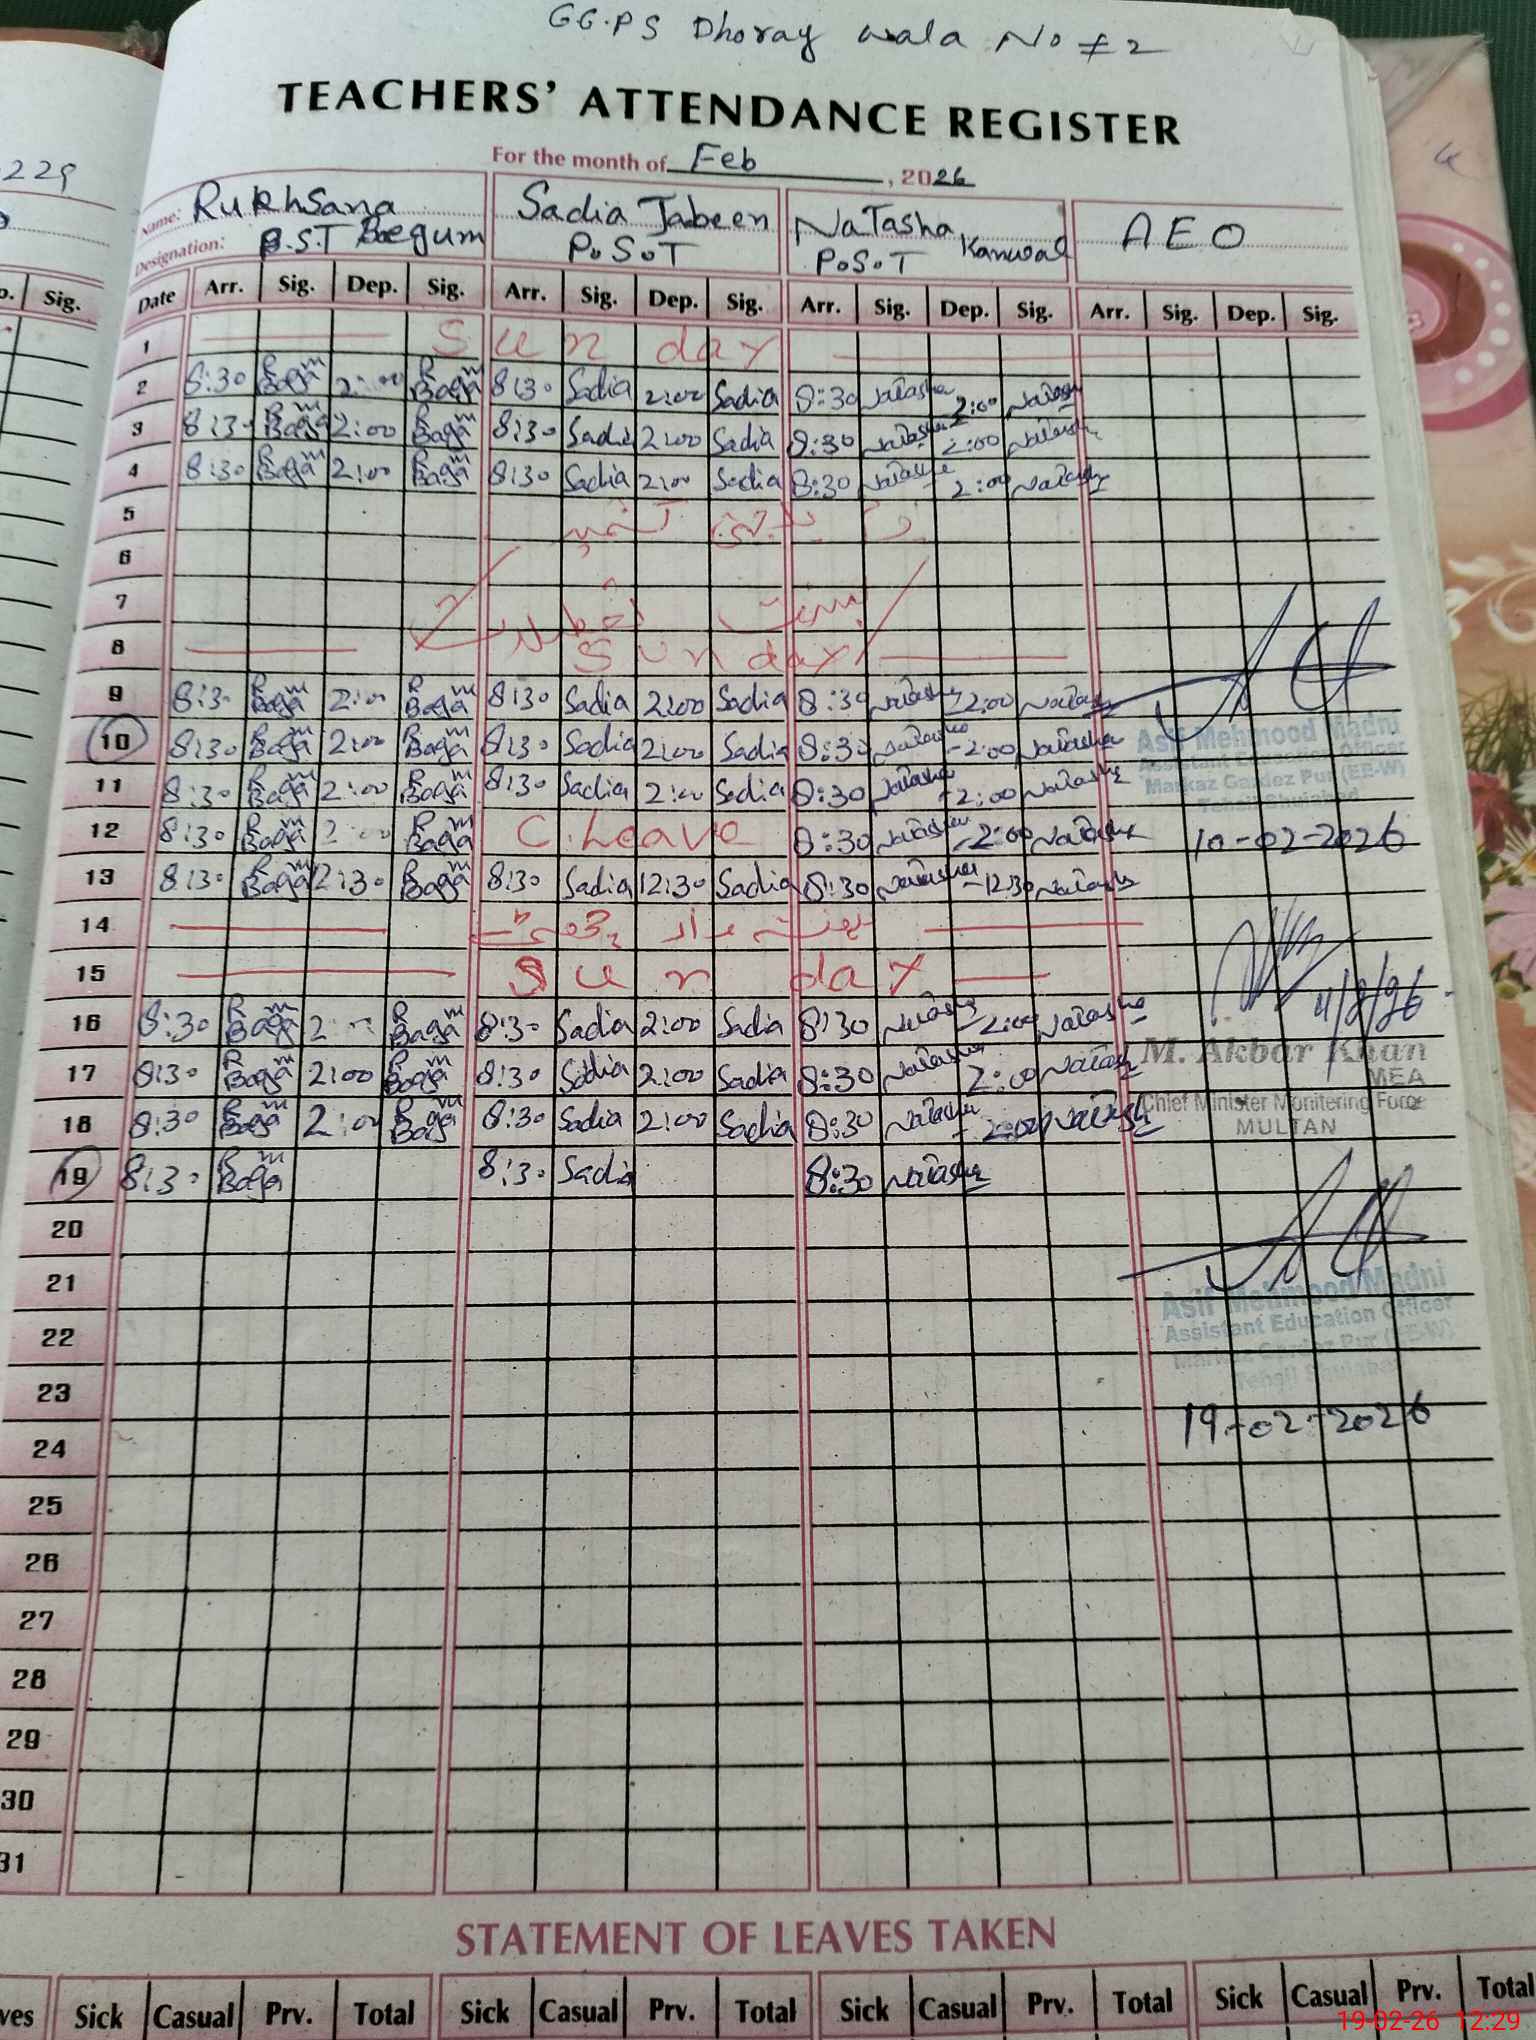 GG.PS Dhoray wala No # 2
TEACHERS' ATTENDANCE REGISTER
For the month of Feb, 2026
229
Name: Rukhsana Begum Sadia Jabeen NaTasha Kanwal AEO
Designation: P.S.T P.S.T P.S.T
Sig. Date Arr. Sig. Dep. Sig. Arr. Sig. Dep. Sig. Arr. Sig. Dep. Sig. Arr. Sig. Dep. Sig.
1 Sunday
2 8:30 2:00 8:30 Sadia 2:00 Sadia 8:30 Natasha 2:00 Natasha
3 8:30 2:00 8:30 Sadia 2:00 Sadia 8:30 Natasha 2:00 Natasha
4 8:30 2:00 8:30 Sadia 2:00 Sadia 8:30 Natasha 2:00 Natasha
5
6
7
8 Sunday
9 8:30 2:00 8:30 Sadia 2:00 Sadia 8:30 Natasha 2:00 Natasha
10 8:30 2:00 8:30 Sadia 2:00 Sadia 8:30 Natasha 2:00 Natasha
Asif Mehmood Madni
Assistant Education Officer
Markaz Gardez Pur (EE-W)
Tehsil Shujabad
11 8:30 2:00 8:30 Sadia 2:00 Sadia 8:30 Natasha 2:00 Natasha
12 8:30 2:00 C.Leave 8:30 Natasha 2:00 Natasha 10-02-2026
13 8:30 12:30 8:30 Sadia 12:30 Sadia 8:30 Natasha 12:30 Natasha
14
15 Sunday
16 8:30 2:00 8:30 Sadia 2:00 Sadia 8:30 Natasha 2:00 Natasha
17 8:30 2:00 8:30 Sadia 2:00 Sadia 8:30 Natasha 2:00 Natasha
M. Akbar Khan
MEA
Chief Minister Monitering Force
MULTAN
18 8:30 2:00 8:30 Sadia 2:00 Sadia 8:30 Natasha 2:00 Natasha
19 8:30 8:30 Sadia 8:30 Natasha
20
21
Asif Mehmood Madni
Assistant Education Officer
Markaz Gardez Pur (EE-W)
Tehsil Shujabad
22
23
19-02-2026
24
25
26
27
28
29
30
31
STATEMENT OF LEAVES TAKEN
Sick Casual Prv. Total Sick Casual Prv. Total Sick Casual Prv. Total Sick Casual Prv. Total
19-02-26 12:29